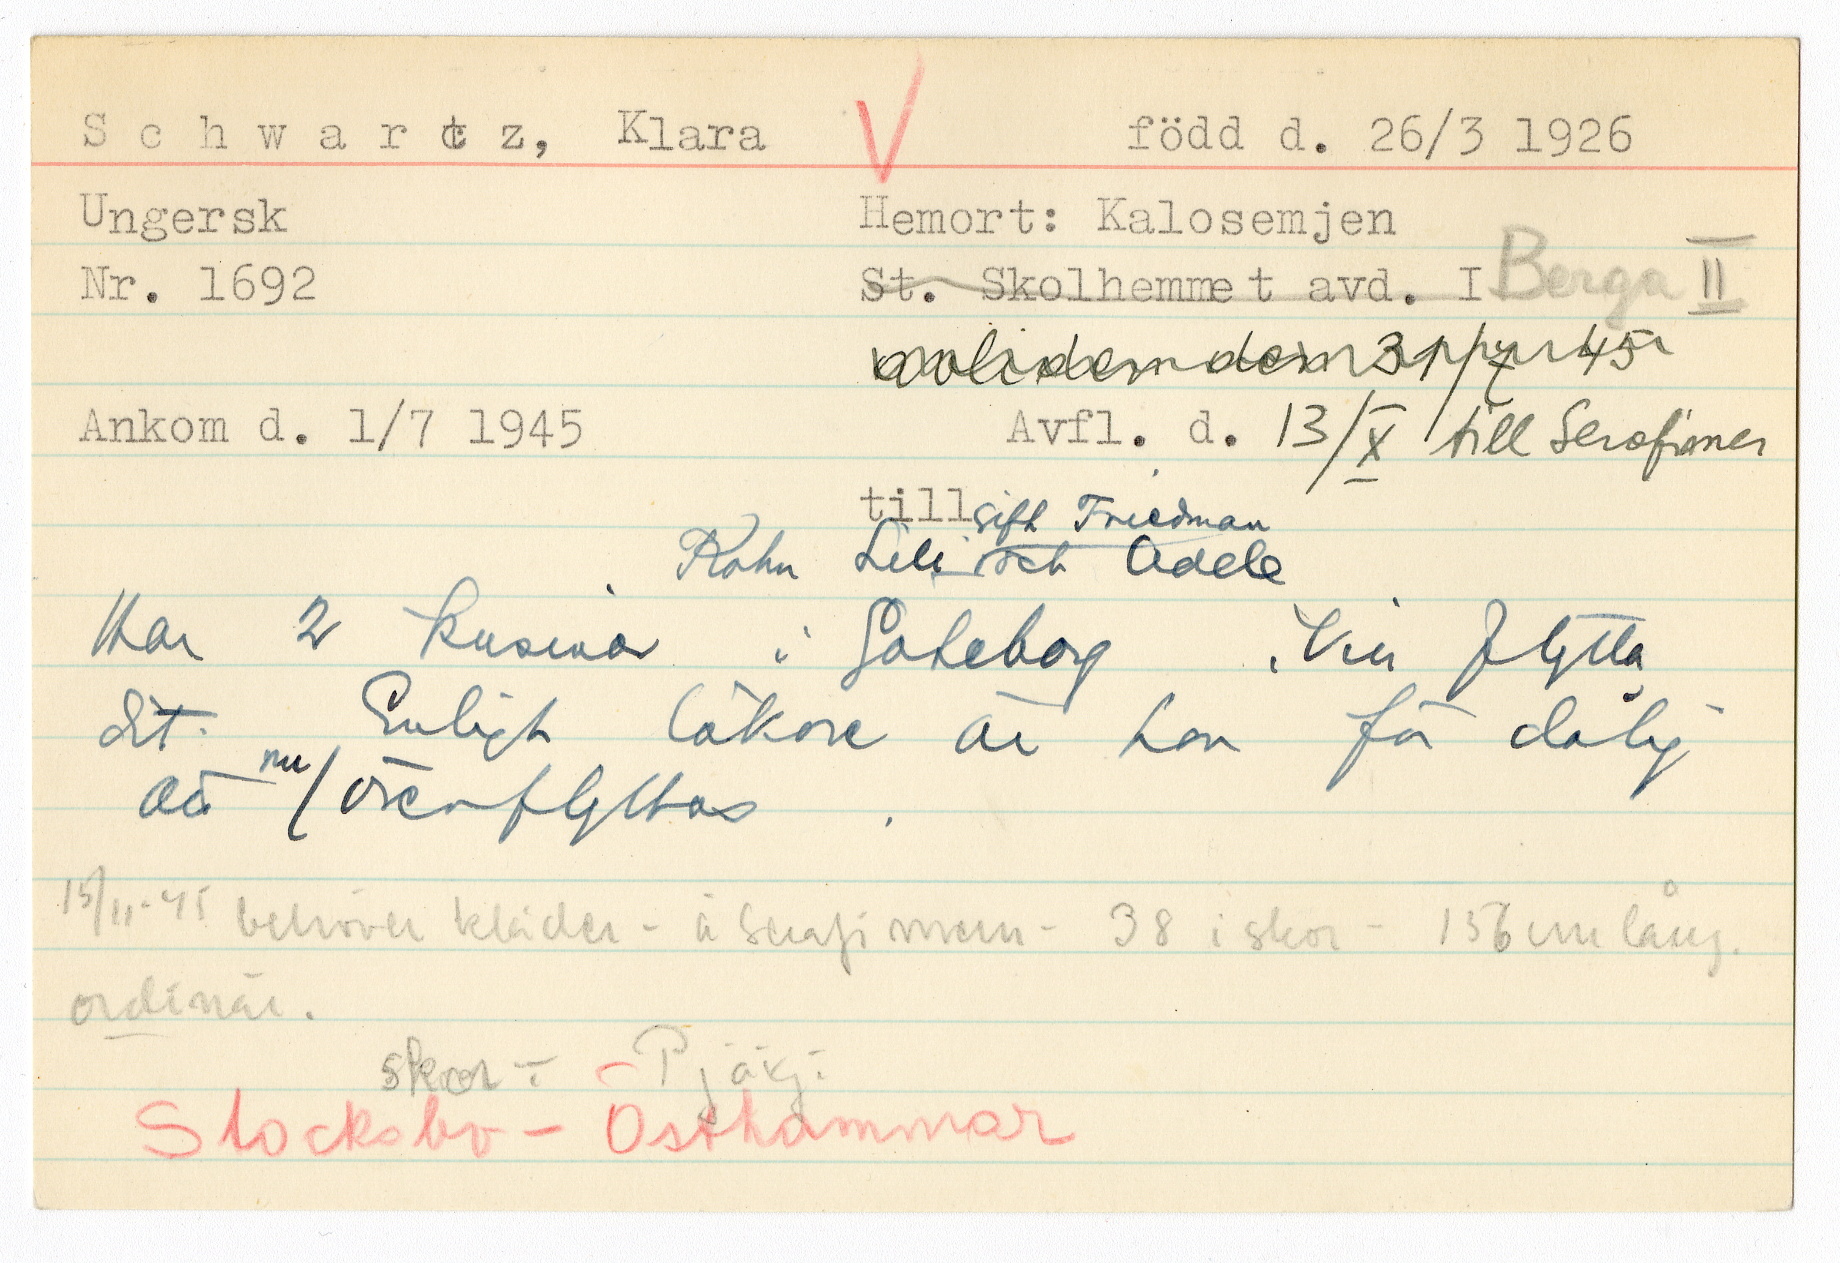 Schwartz, Klara V född d. 26/3 1926
Ungersk Hemort: Kalosemjen
Nr. 1692 St. Skolhemmet avd. I Berga II
Ankom d. 1/7 1945 Avfl. d. 13/X till Serafimer
till gift Friedman
Kohn Lili och Adele
Har 2 kusinor i Göteborg. Vill flytta
dit. Enligt läkare är hon för dålig
att nu/överflyttas.
15/11-45 behöver kläder - å Serafimern - 38 i skor - 156 cm lång.
ordinär.
skor -
Stocksbo - Östhammar